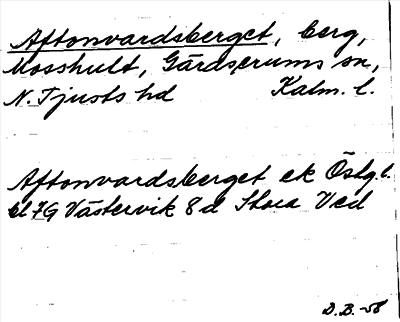 Aftonvardsberget, berg,
Mosshult, Gärdserums sn,
N. Tjusts hd Kalm. l.
Aftonvardsberget ek Östg. l.
bl 7G Västervik 8d Stora Ved
D.B.-58